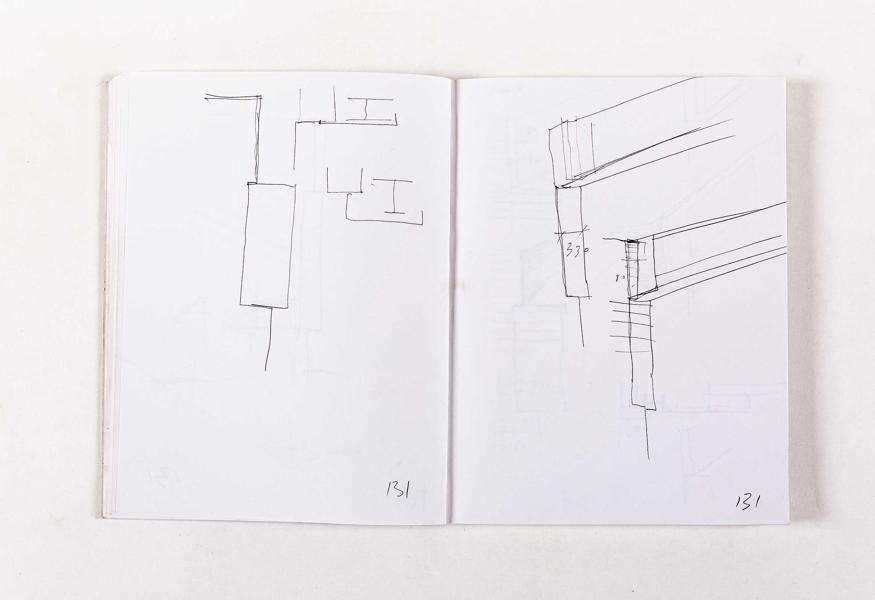 131
330
80
131